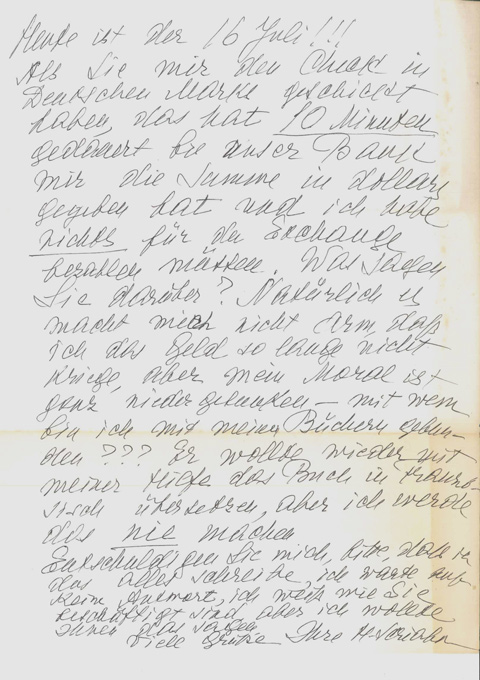 Heute ist der 16 Juli!!!
Als Sie mir den Check in
Deutschen Marks geschickt
haben, das hat 10 Minuten
gedauert bis unser Bank
mir die Summe in dollars
gegeben hat und ich habe
nichts für den Exchange
bezahlen müssen. Was sagen
Sie darüber? Natürlich es
macht mich nicht arm daß
ich das Geld so lange nicht
kriege, aber mein Moral ist
ganz niedergesunken – mit wem
bin ich mit meinen Büchern gebun-
den ??? Er wollte wieder mit
meiner Hilfe das Buch in franzö-
sisch übersetzen, aber ich werde
das nie machen
Entschuldigen Sie mich, bitte, daß ich
das alles schreibe, ich warte auf
keine Antwort, ich weiß wie Sie
beschäftigt sind aber ich wollte
Ihnen das sagen
Viele Grüße Ihre